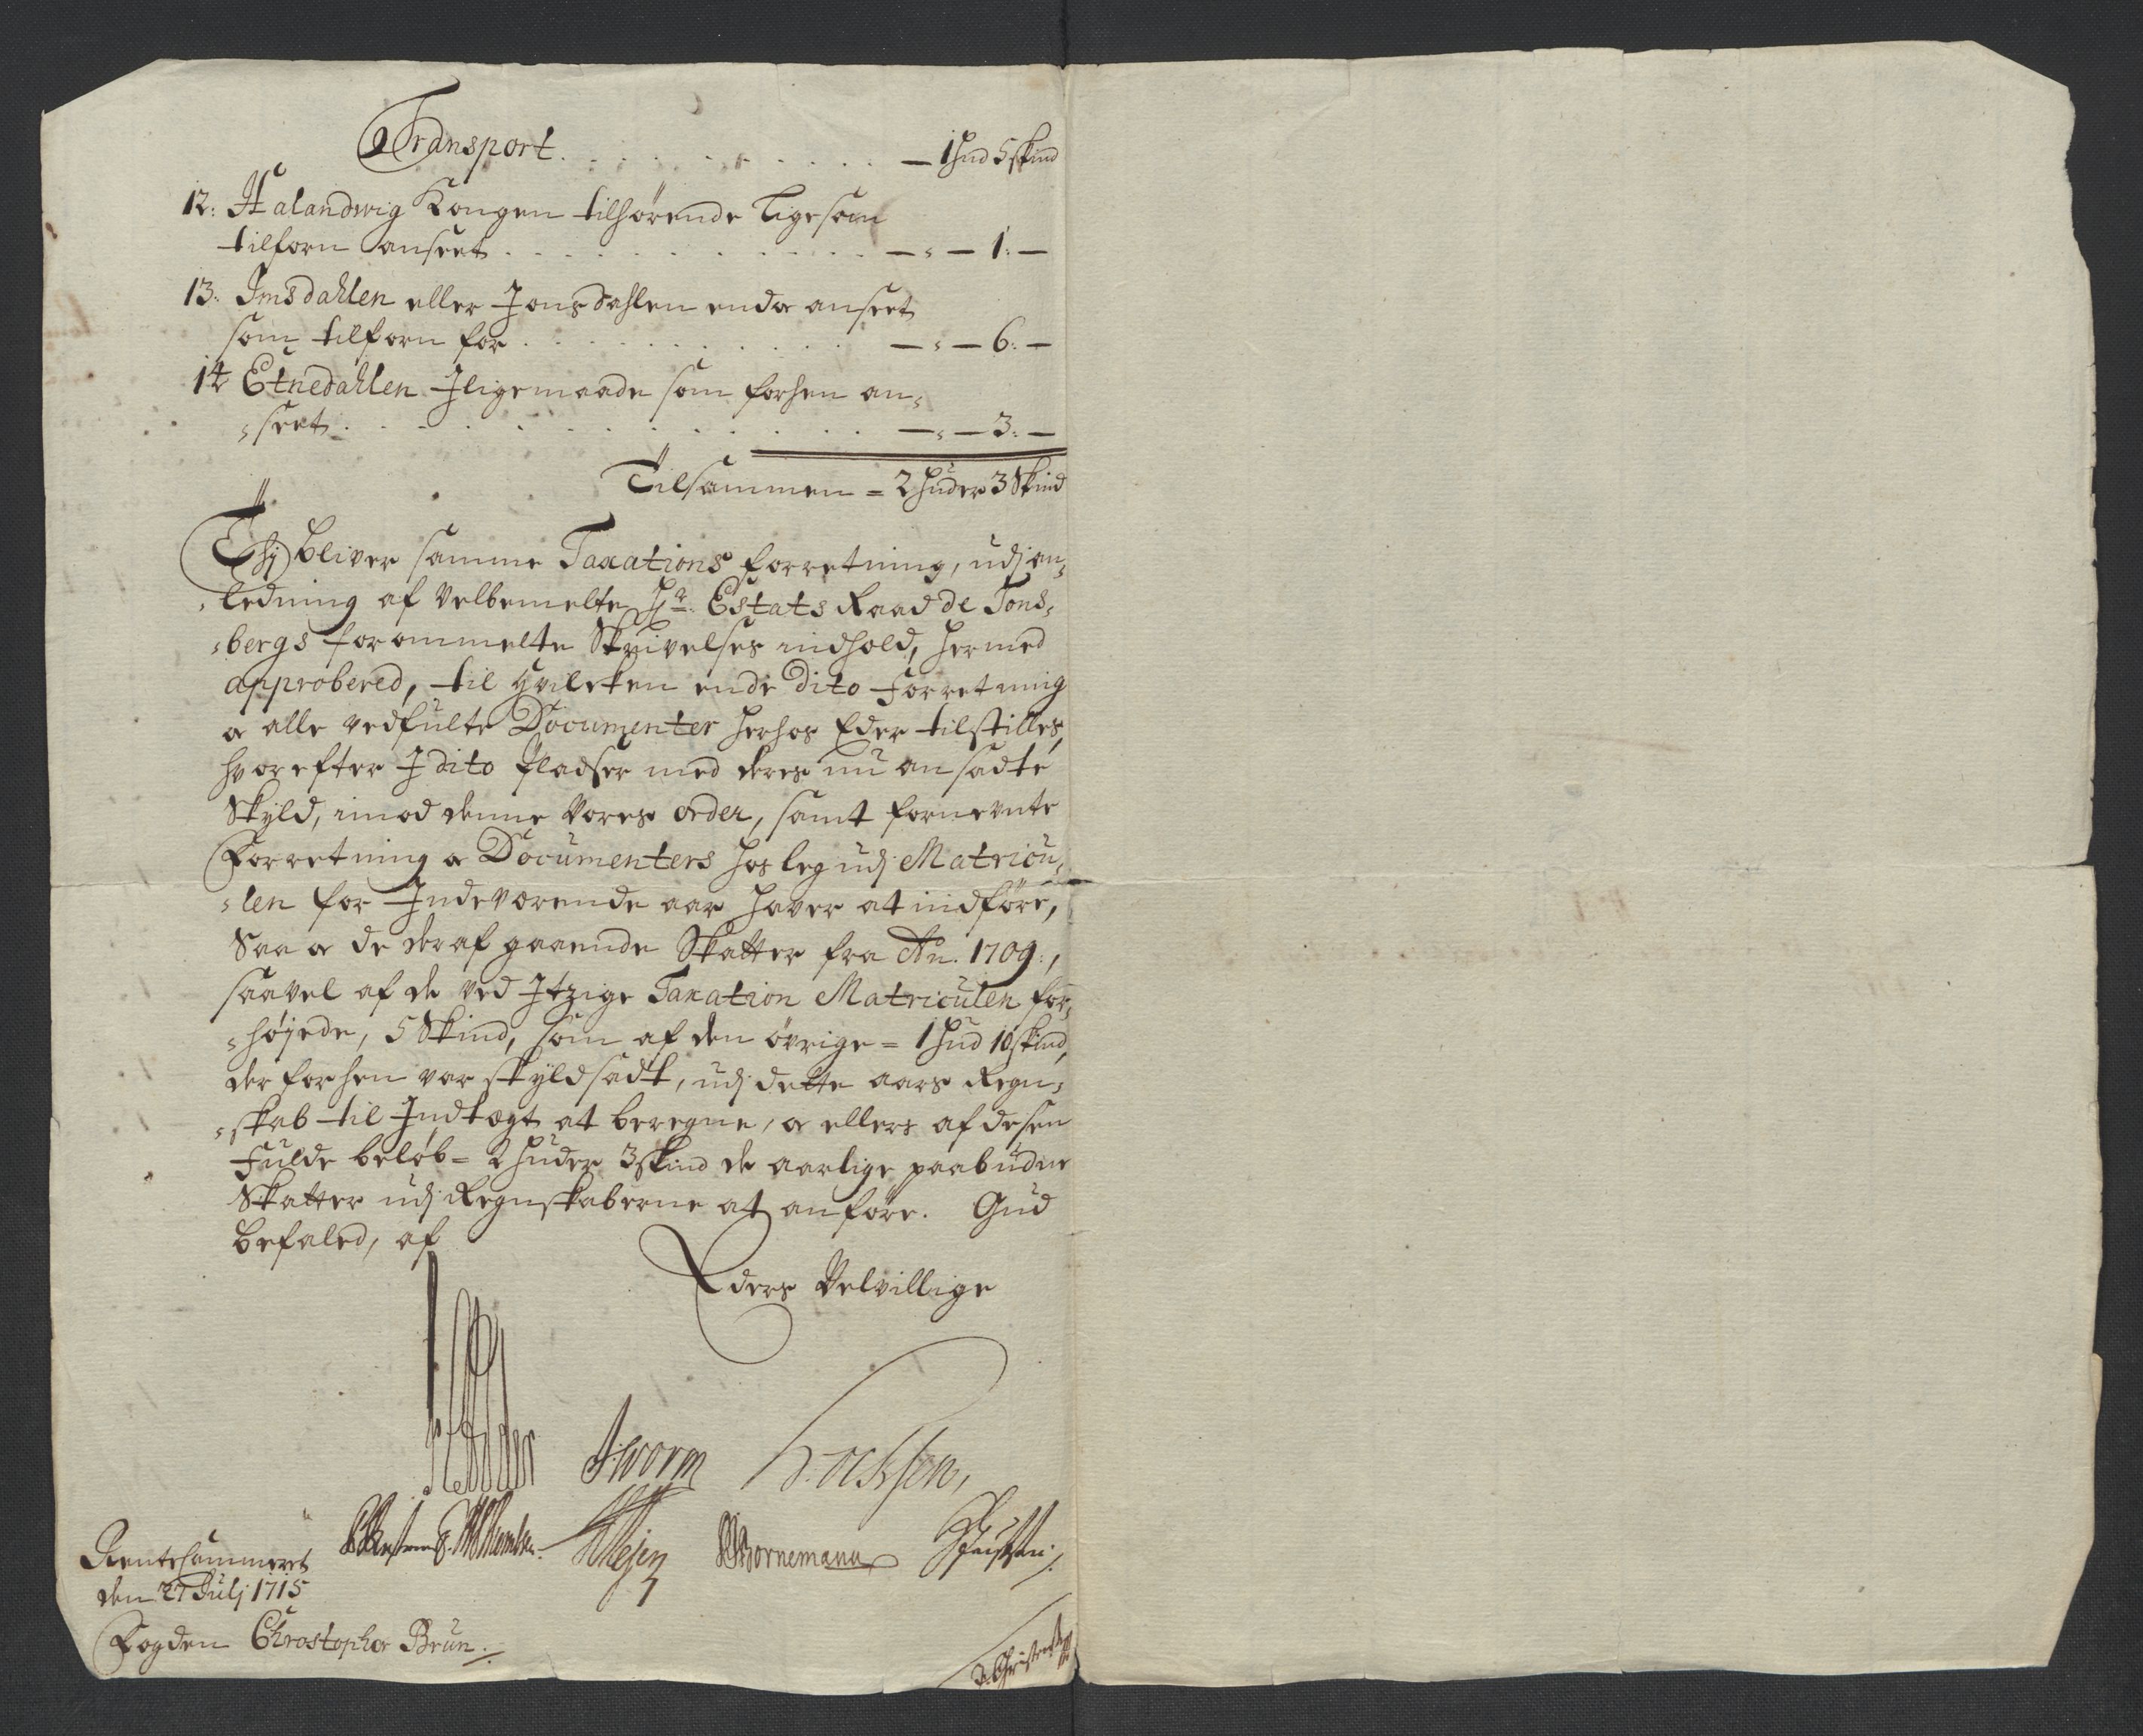 Transport. . . . . . . . . . — 1 Hud 5 skind
12: Halandwig Kongen tilhörende ligesom
tilforn anseet . . . . . . . . . . — „ — 1: —
13: Imsdahlen eller Jonsdahlen endo anseet
som tilforn for . . . . . . . . . . — „ — 6: —
14 Etnedahlen Iligemaade som forhen an„
„seet . . . . . . . . . . — „ — 3: —
Tilsammen = 2 Huder 3 Skind
Thj bliver samme Taxations forretning, udj an„
„ledning af velbemelte Hr. Estats Raad de Tons„
„bergs forommelte Skrivelses indhold, hermed
approbered, til hvilcken ende dito Forretning
og alle vedfulte Documenter herhos Eder tilstilles,
hvorefter I dito pladser med deres nu ansadte
Skyld, imod denne vores order, samt fornevnte
Forretning og Documenters hosleg udj Matricu„
„len for Indeværende aar haver at indföre,
Saa og de deraf gaaende Skatter fra An. 1709:,
saavel af de ved Itzige Taxation Matriculen for„
„höjede, 5 Skind, som af den övrige = 1 Hud 10 skind,
der forhen var skyldsadt, udj dette aars Regn„
„skab til Indtægt at beregne, og ellers af desen
Fulde beløb = 2 Huder 3 skind de aarlige paabudne
Skatter udj Regnskaberne at anföre. Gud
befaled, af
Eders Velvillige
JWorm
Bornemann
Rentekammeret
den 27 Julj 1715
Fogden Christopher Brun.